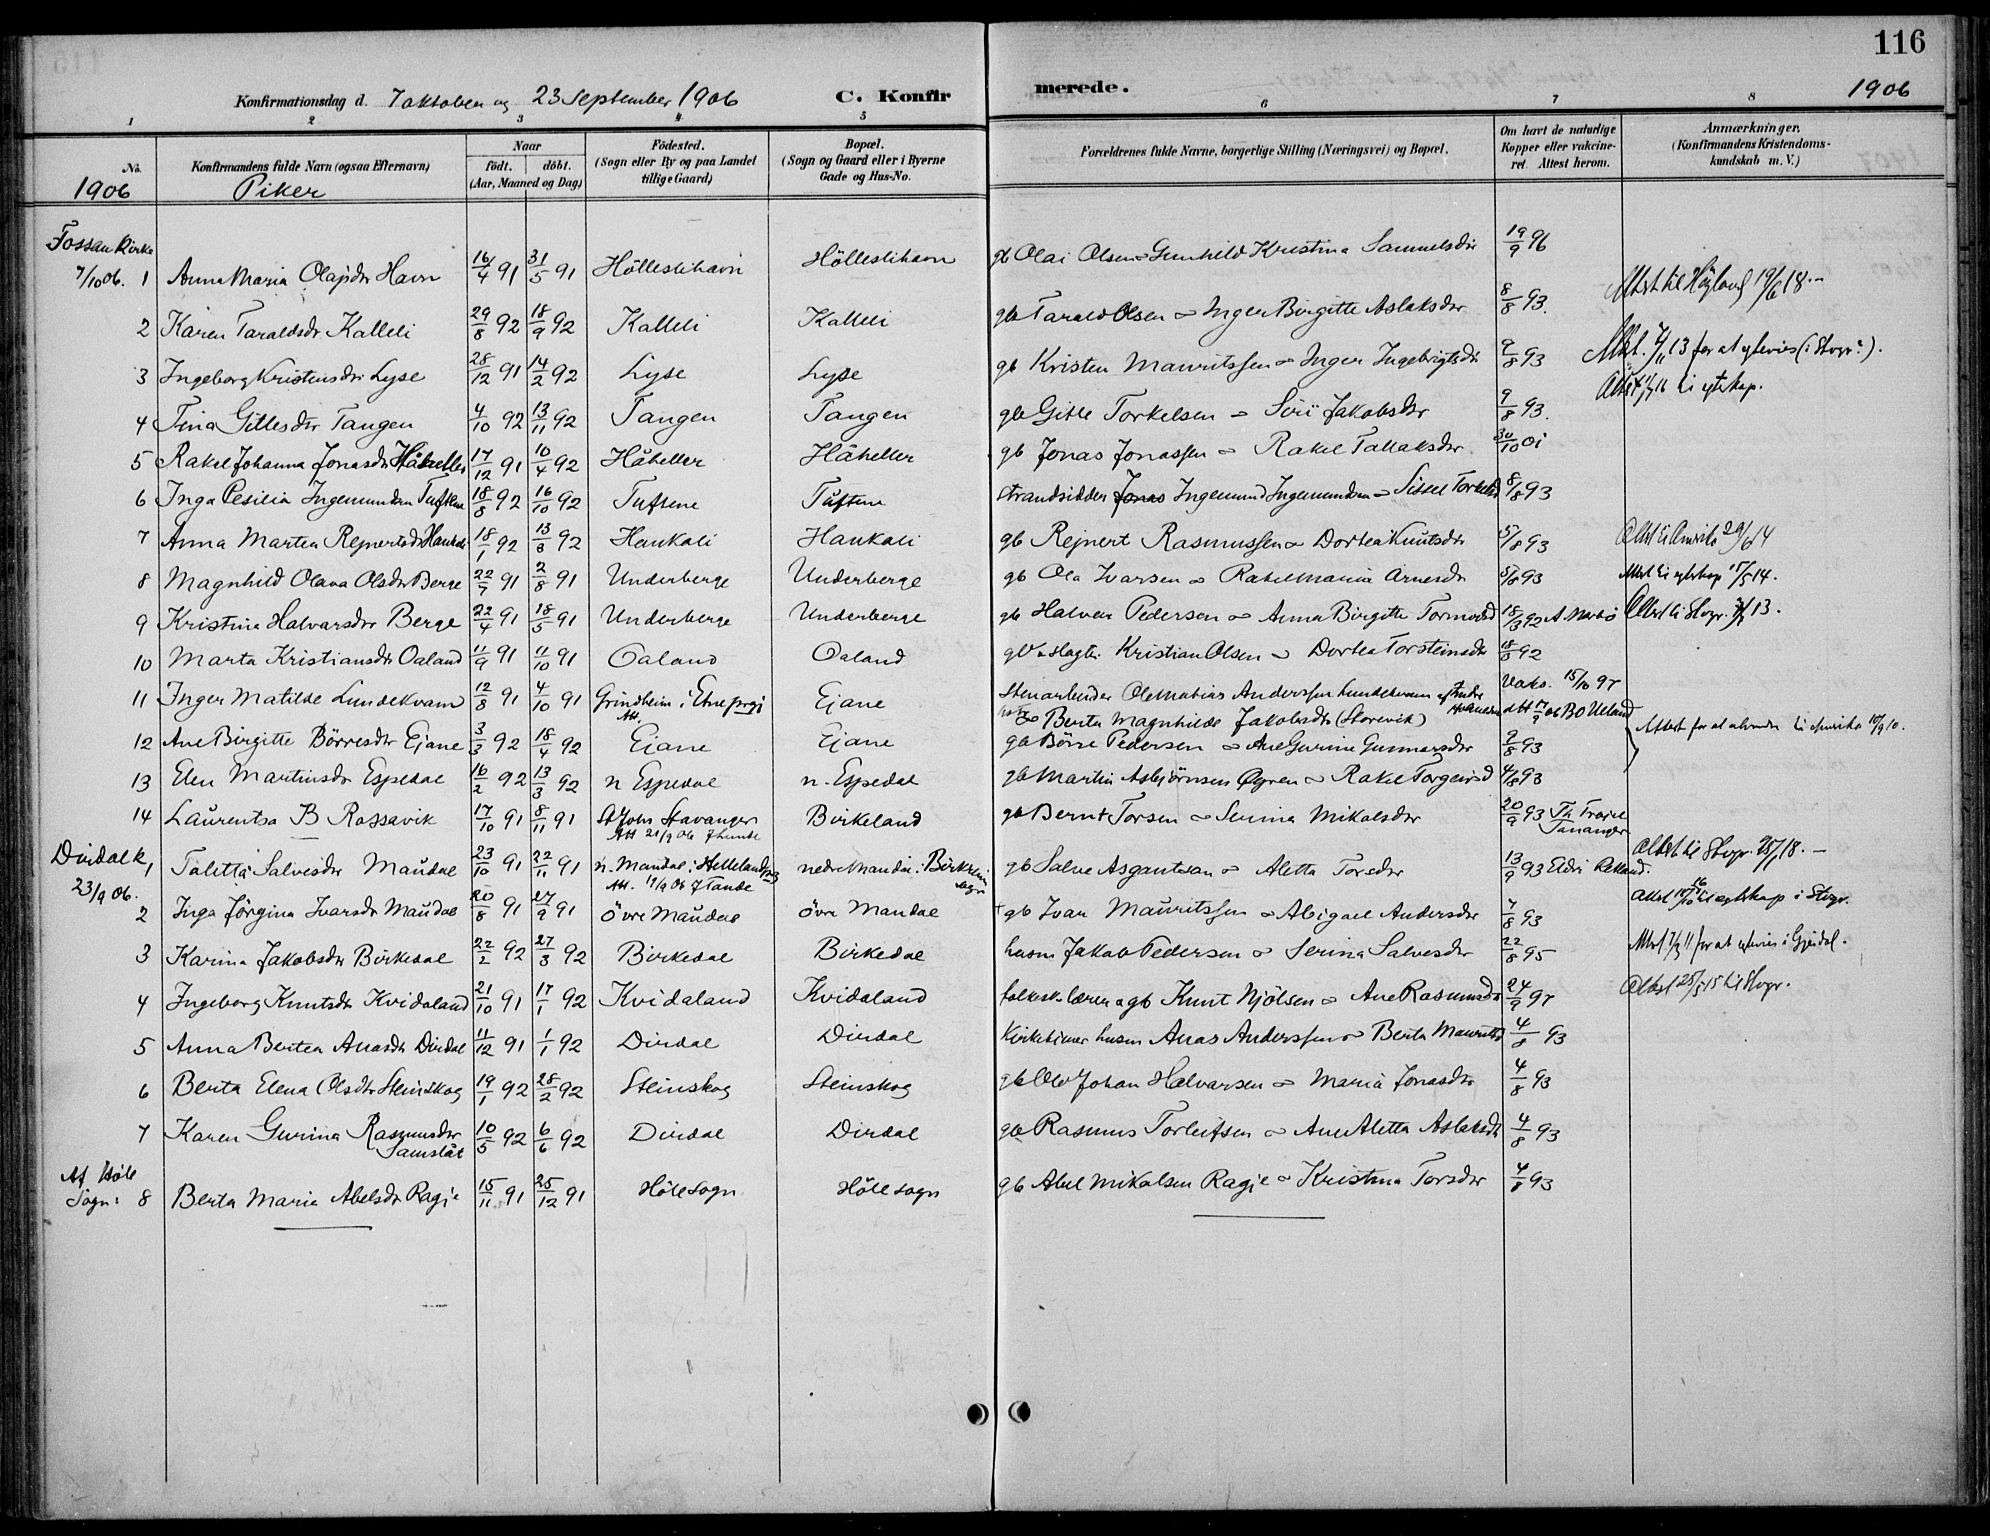 116
Konfirmationsdag d. 7 oktober og 23 September 1906 C. Konfirmerede. 1906
1 2 3 4 5 6 7 8
No. Konfirmandens fulde Navn (ogsaa Efternavn) Naar födt. döbt. (Aar, Maaned og Dag) Födested. (Sogn eller By og paa Landet tillige Gaard) Bopæl. (Sogn og Gaard eller i Byerne Gade og Hus-No. Forældrenes fulde Navne, borgerlige Stilling (Næringsvei) og Bopæl. Om havt de naturlige Kopper eller vaccineret. Attest herom. Anmærkninger. (Konfirmandens Kristendomskundskab m. V.)
1906 Piker
Fossan Kirke
7/10 06. 1 Anna Maria Olajsdr Havn 16/4 91 31/5 91 Hölleslihavn Hölleslihavn gb Olai Olsen o Gunhild Kristina Samuelsdr 19/9 96
2 Karen Taraldsdr Kalleli 29/8 92 18/9 92 Kalleli Kalleli gb Tarald Olsen o Inger Birgitte Aslaksdr 8/8 93. Attest til Höyland 19/6 18.-
3 Ingeborg Kristensdr Lyse 28/12 91 14/2 92 Lyse Lyse gb Kristen Mauritssen o Inger Ingebrigtsdr 9/8 93 13 for at ektevies (i Stvgr?).
4 Tina Gillesdr Tangen 4/10 92 13/11 92 Tangen Tangen gb Gitle Torkelsen o Siri Jakobsdr 9/8 93. 16 til egteskap.
5 Rakel Johanna Jonasdr Håheller 17/12 91 10/4 92 Håheller Håheller gb Jonas Jonassen o Rakel Tallaksdr 30/10 01
6 Inga Cesilia Ingemundsen Tuftene 18/8 92 16/10 92 Tuftene Tuftene strandsidder Jonas Ingemund Ingemundsen o Sissel Torkelsd 8/8 93
7 Anna Martea Rejnertsdr Haukali 18/1 92 13/3 92 Haukali Haukali gb Rejnert Rasmussen o Dortea Knutsdr 5/8 93 Attest til Amerika 29/6 14
8 Magnhild Olava Olsdr Berge 22/7 91 2/8 91 Underberge Underberge gb Ola Ivarsen o Rakel Maria Arnesdr 5/8 93 Attest til egteskap 17/5 14.
9 Kristina Halvarsdr Berge 22/4 91 18/5 91 Underberge Underberge gb Halvar Pedersen o Anna Birgitte Tormodsd 18/3 92 Attest til Stvgr. 13.
10 Marta Kristiansdr Oaland 11/9 91 11/10 91 Oaland Oaland Kristian Olsen o Dortea Torsteinsdr 18/8 92
11 Inger Matilde Lundekvam 12/8 91 4/10 91 Grindheim i Etne prgj Att. Ejane Stenarbeider Ole Matias Anderssen Lundekvam Vaks. 15/10 97
o Berta Magnhilde Jakobsdr (Storevik) att 17/9 06 B O Ueland
12 Ane Birgitte Börresdr Ejane 3/3 92 18/4 92 Ejane Ejane gb Börre Pedersen o Ane Gurine Gunnarsdr 9/8 93 Attest for at utvandre til Amerika 10/9 10.
13 Elen Martinsdr Espedal 16/2 92 13/3 92 n Espedal n. Espedal gb Martin Asbjörnsen Öyren o Rakel Torgeirsd 4/8 93
14 Laurentsa B Rossavik 17/10 91 8/11 91 St Johs Stavanger Att 21/9 06 J Lunde Birkeland gb Bernt Torsen o Serina Mikalsdr 20/9 93 Tananger
Dirdal k.
23/9 06. 1 Taletta Salvesdr Maudal 23/10 91 22/11 91 n. Maudal i Helleland prg Att. 19/9 06 J Tande nedre Maudal i Birkrem sogn gb Salve Asgautsen o Aletta Torsdr 13/9 93 Attest til Stvgr. 28/1 18.-
2 Inga Jörgina Ivarsdr Maudal 20/8 91 27/9 91 övre Maudal övre Maudal gb Ivar Mauritssen o Abigael Andersdr 7/8 93 til egteskap i Stvgr.
3 Karina Jakobsdr Birkedal 22/2 92 27/3 92 Birkedal Birkedal husm Jakob Pedersen o Serina Salvesdr 22/8 95 11 for at egtevies i Gjesdal.
4 Ingeborg Knutsdr Kvidaland 21/10 91 17/1 92 Kvidaland Kvidaland folkesk. lærer o gb Knut Njölsen o Ane Rasmusdr 24/9 97 Attest 25/5 15 til Stvgr.
5 Anna Bertea Anasdr Dirdal 11/12 91 1/1 92 Dirdal Dirdal Kirketiener husm Anas Anderssen o Berta Mauritsd 4/8 93
6 Berta Elena Olsdr Steinskog 19/1 92 28/2 92 Steinskog Steinskog gb Ole Johan Halvarsen o Maria Jonasdr 4/8 93
7 Karen Gurina Rasmusdr Tamslåt 10/5 92 6/6 92 Dirdal Dirdal gb Rasmus Torleifsen o Ane Aletta Aslaksdr 4/8 93
Af Höle
Sogn: 8 Berta Maria Abelsdr Ragje 15/11 91 25/12 91 Höle sogn Höle sogn gb Abel Mikalsen Ragje o Kristina Torsdr 4/8 93